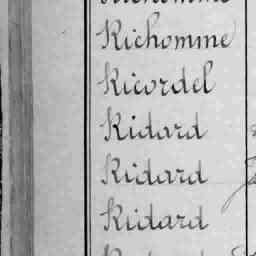 Richomme
Richomme
Ricordel
Ridard
Ridard
Ridard